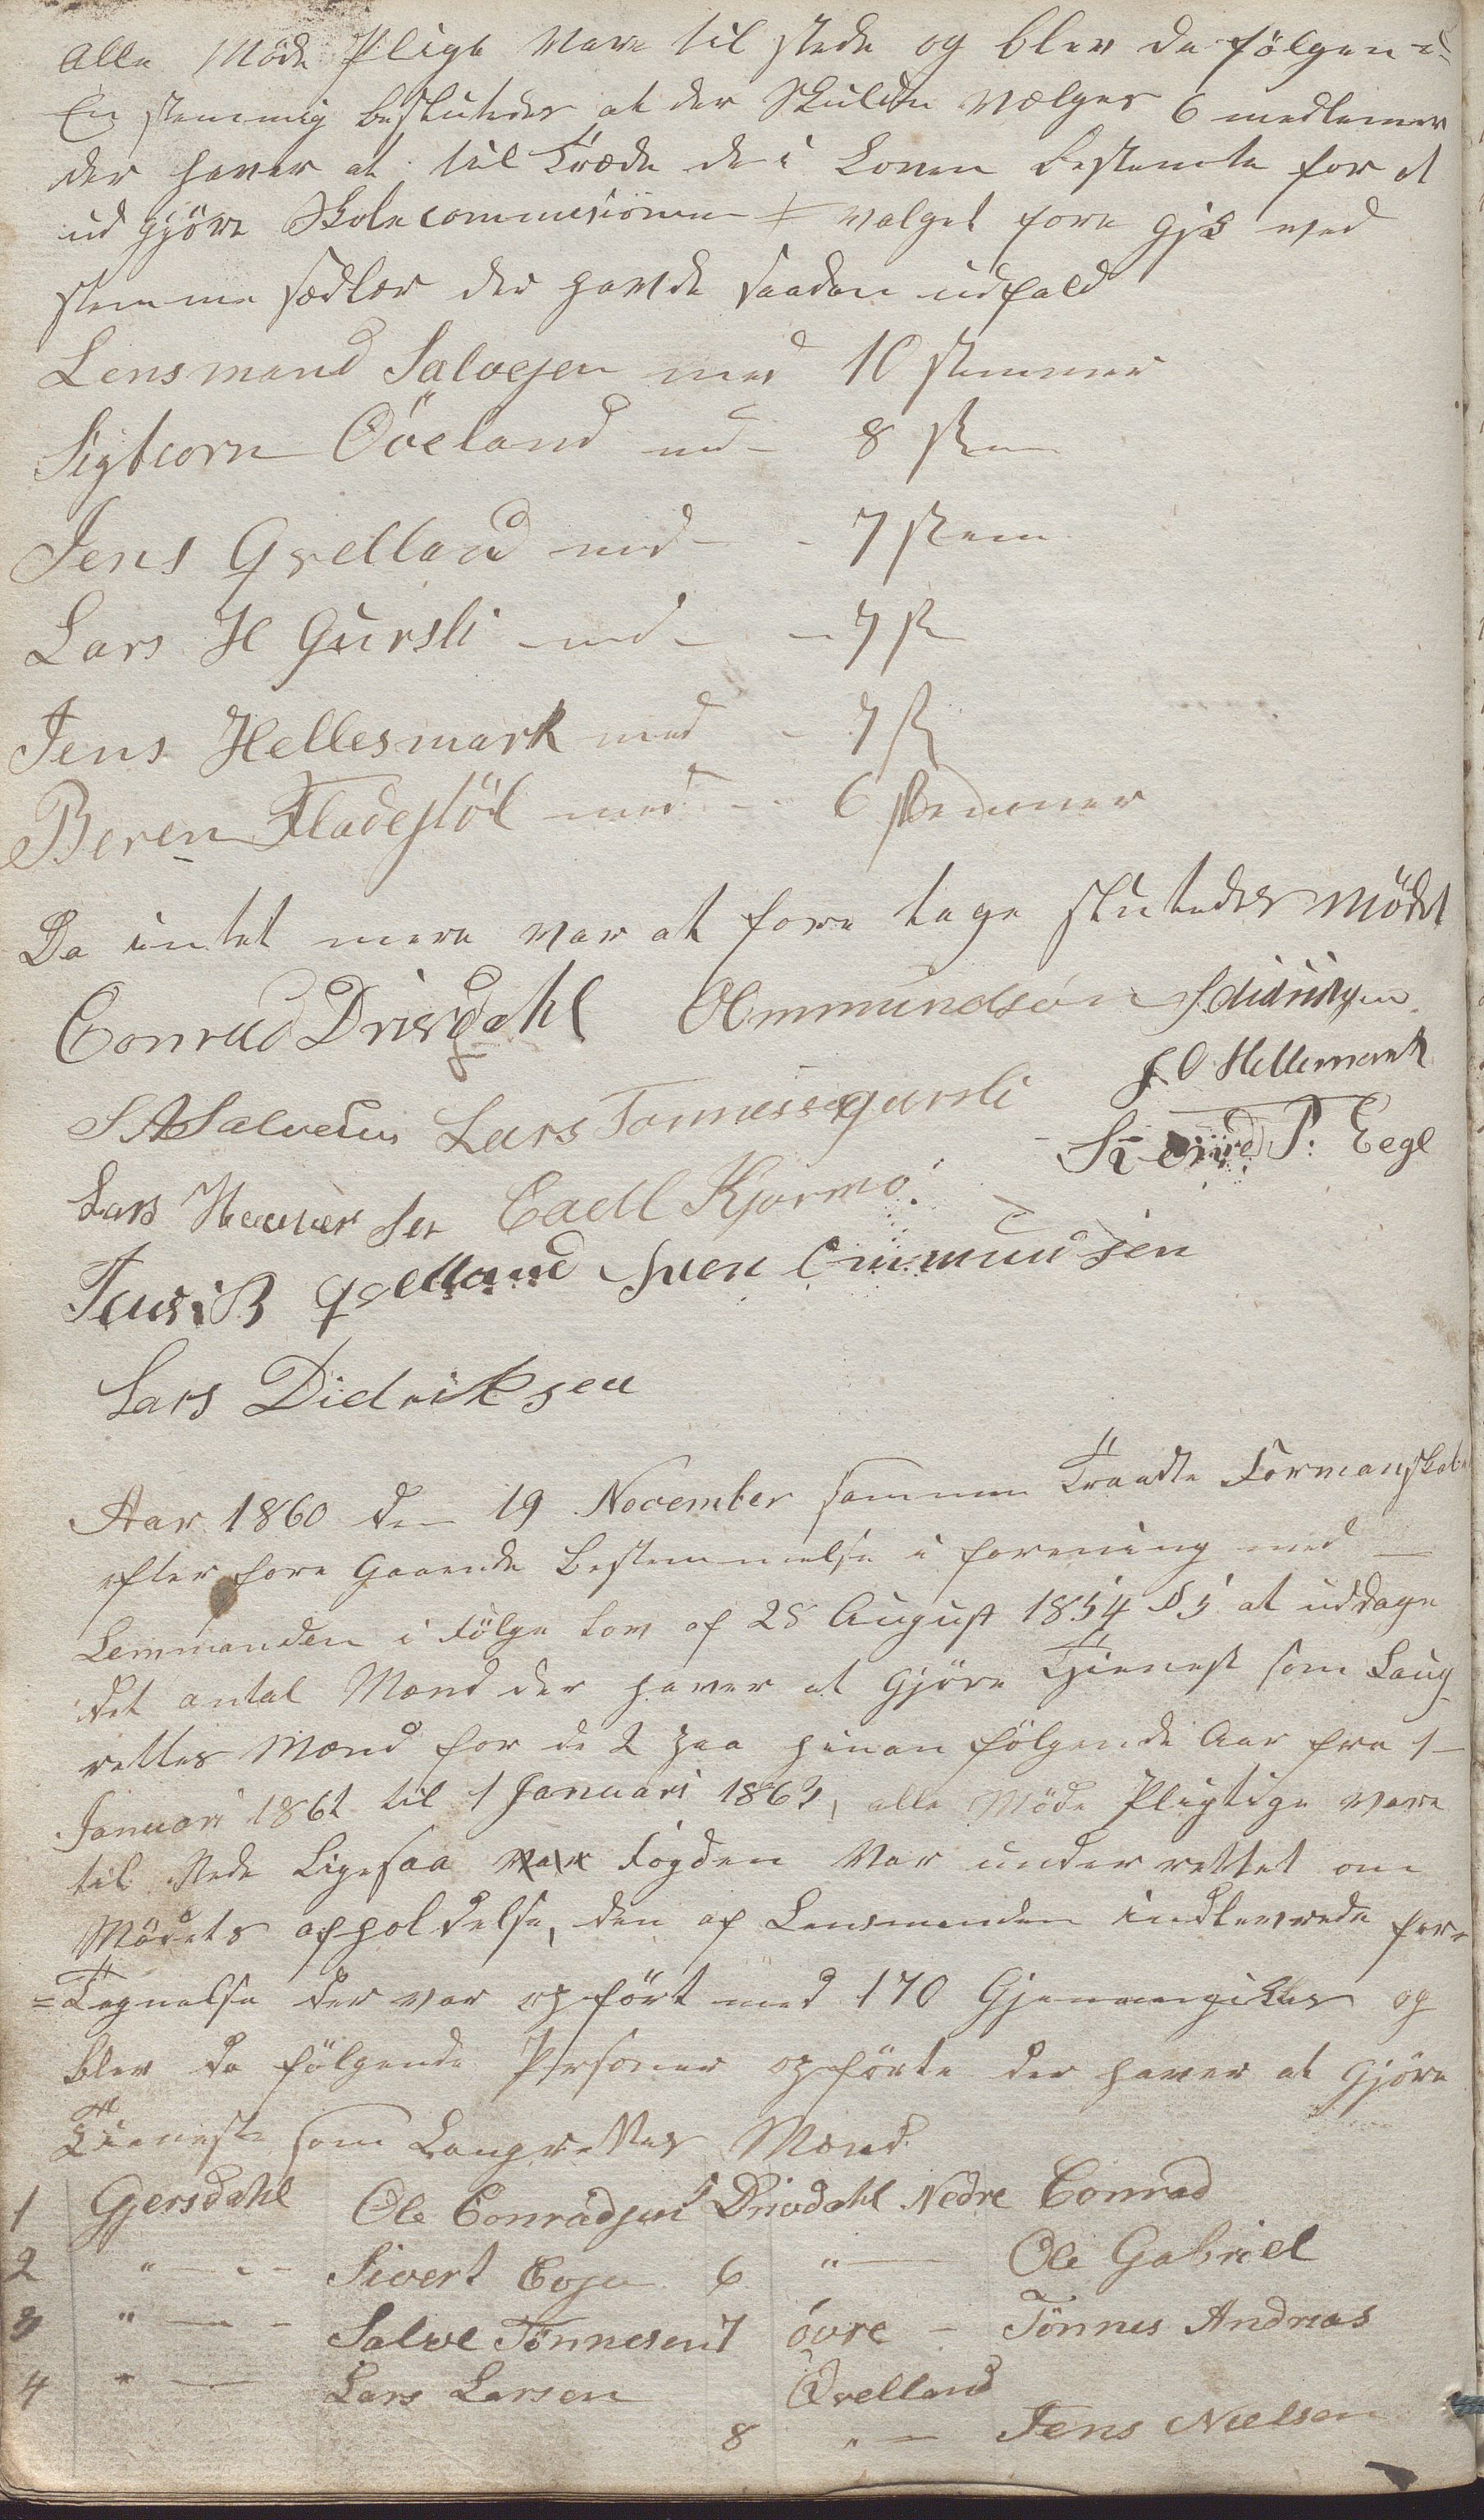 Alle Møde Pligt Vare til stede og blev da følgende
En stemmig besluttedes at der Skulde Vælges 6 medlemer
der haver at til Træde de i Loven bestemte for at
ud gjøre Skolecommisionen valget fore gik med
stemme sedler der havde saadan udfald
Lensmand Salvesen med 10 stemmer
Sigbiorn Oöeland med 8 stem
Jens Qvelland med 7 stem
Lars H Gursli med 7 st
Jens Hellesmark med 7 st
Beren Fladestöl med 6 stemmer
Da intet mere var at fore tage sluttedes Mødet
Conrad Drivdahl OAmmundsön
S A Salvesen Lars Tønnessen gursli J O Hellesmark
Lars Hanssen Carl Kjørmo Sivert P. Eege
Jens Qvelland Sven Ommundsen
Lars Didriksen
Aar 1860 den 19 November sammen Traadte Formanskabet
efter fore Gaaende Bestemmelse i forening med
Lensmanden i Følge Lov af 28 August 1854 § 5 at uddage
det antal Mænd der haver at Gjøre Tjeneste som Laug
rettes Mænd for de 2 paa hinan følgende Aar fra 1
Januari 1861 til 1 Januari 1863, alle Møde Pligtige vare
til stede Ligesaa Fogden Var under rettet om
Mødets afholdelse, den af Lensmanden indleverede for-
=Tegnelse der var op ført med 170 Gjennemgikkes og
blev da følgende Personer opførte der haver at Gjøre
Tieneste som Laugrettes Mænd
1 Gjersdahl Ole Conradsen 5 Drivdahl Nedre Conrad
2 " Sivert 6 " Ole Gabriel
3 " Salve Tønnesen 7 øvre Tönnes Andreas
4 " Lars Larsen Qvelland
8 " Jens Nielsen